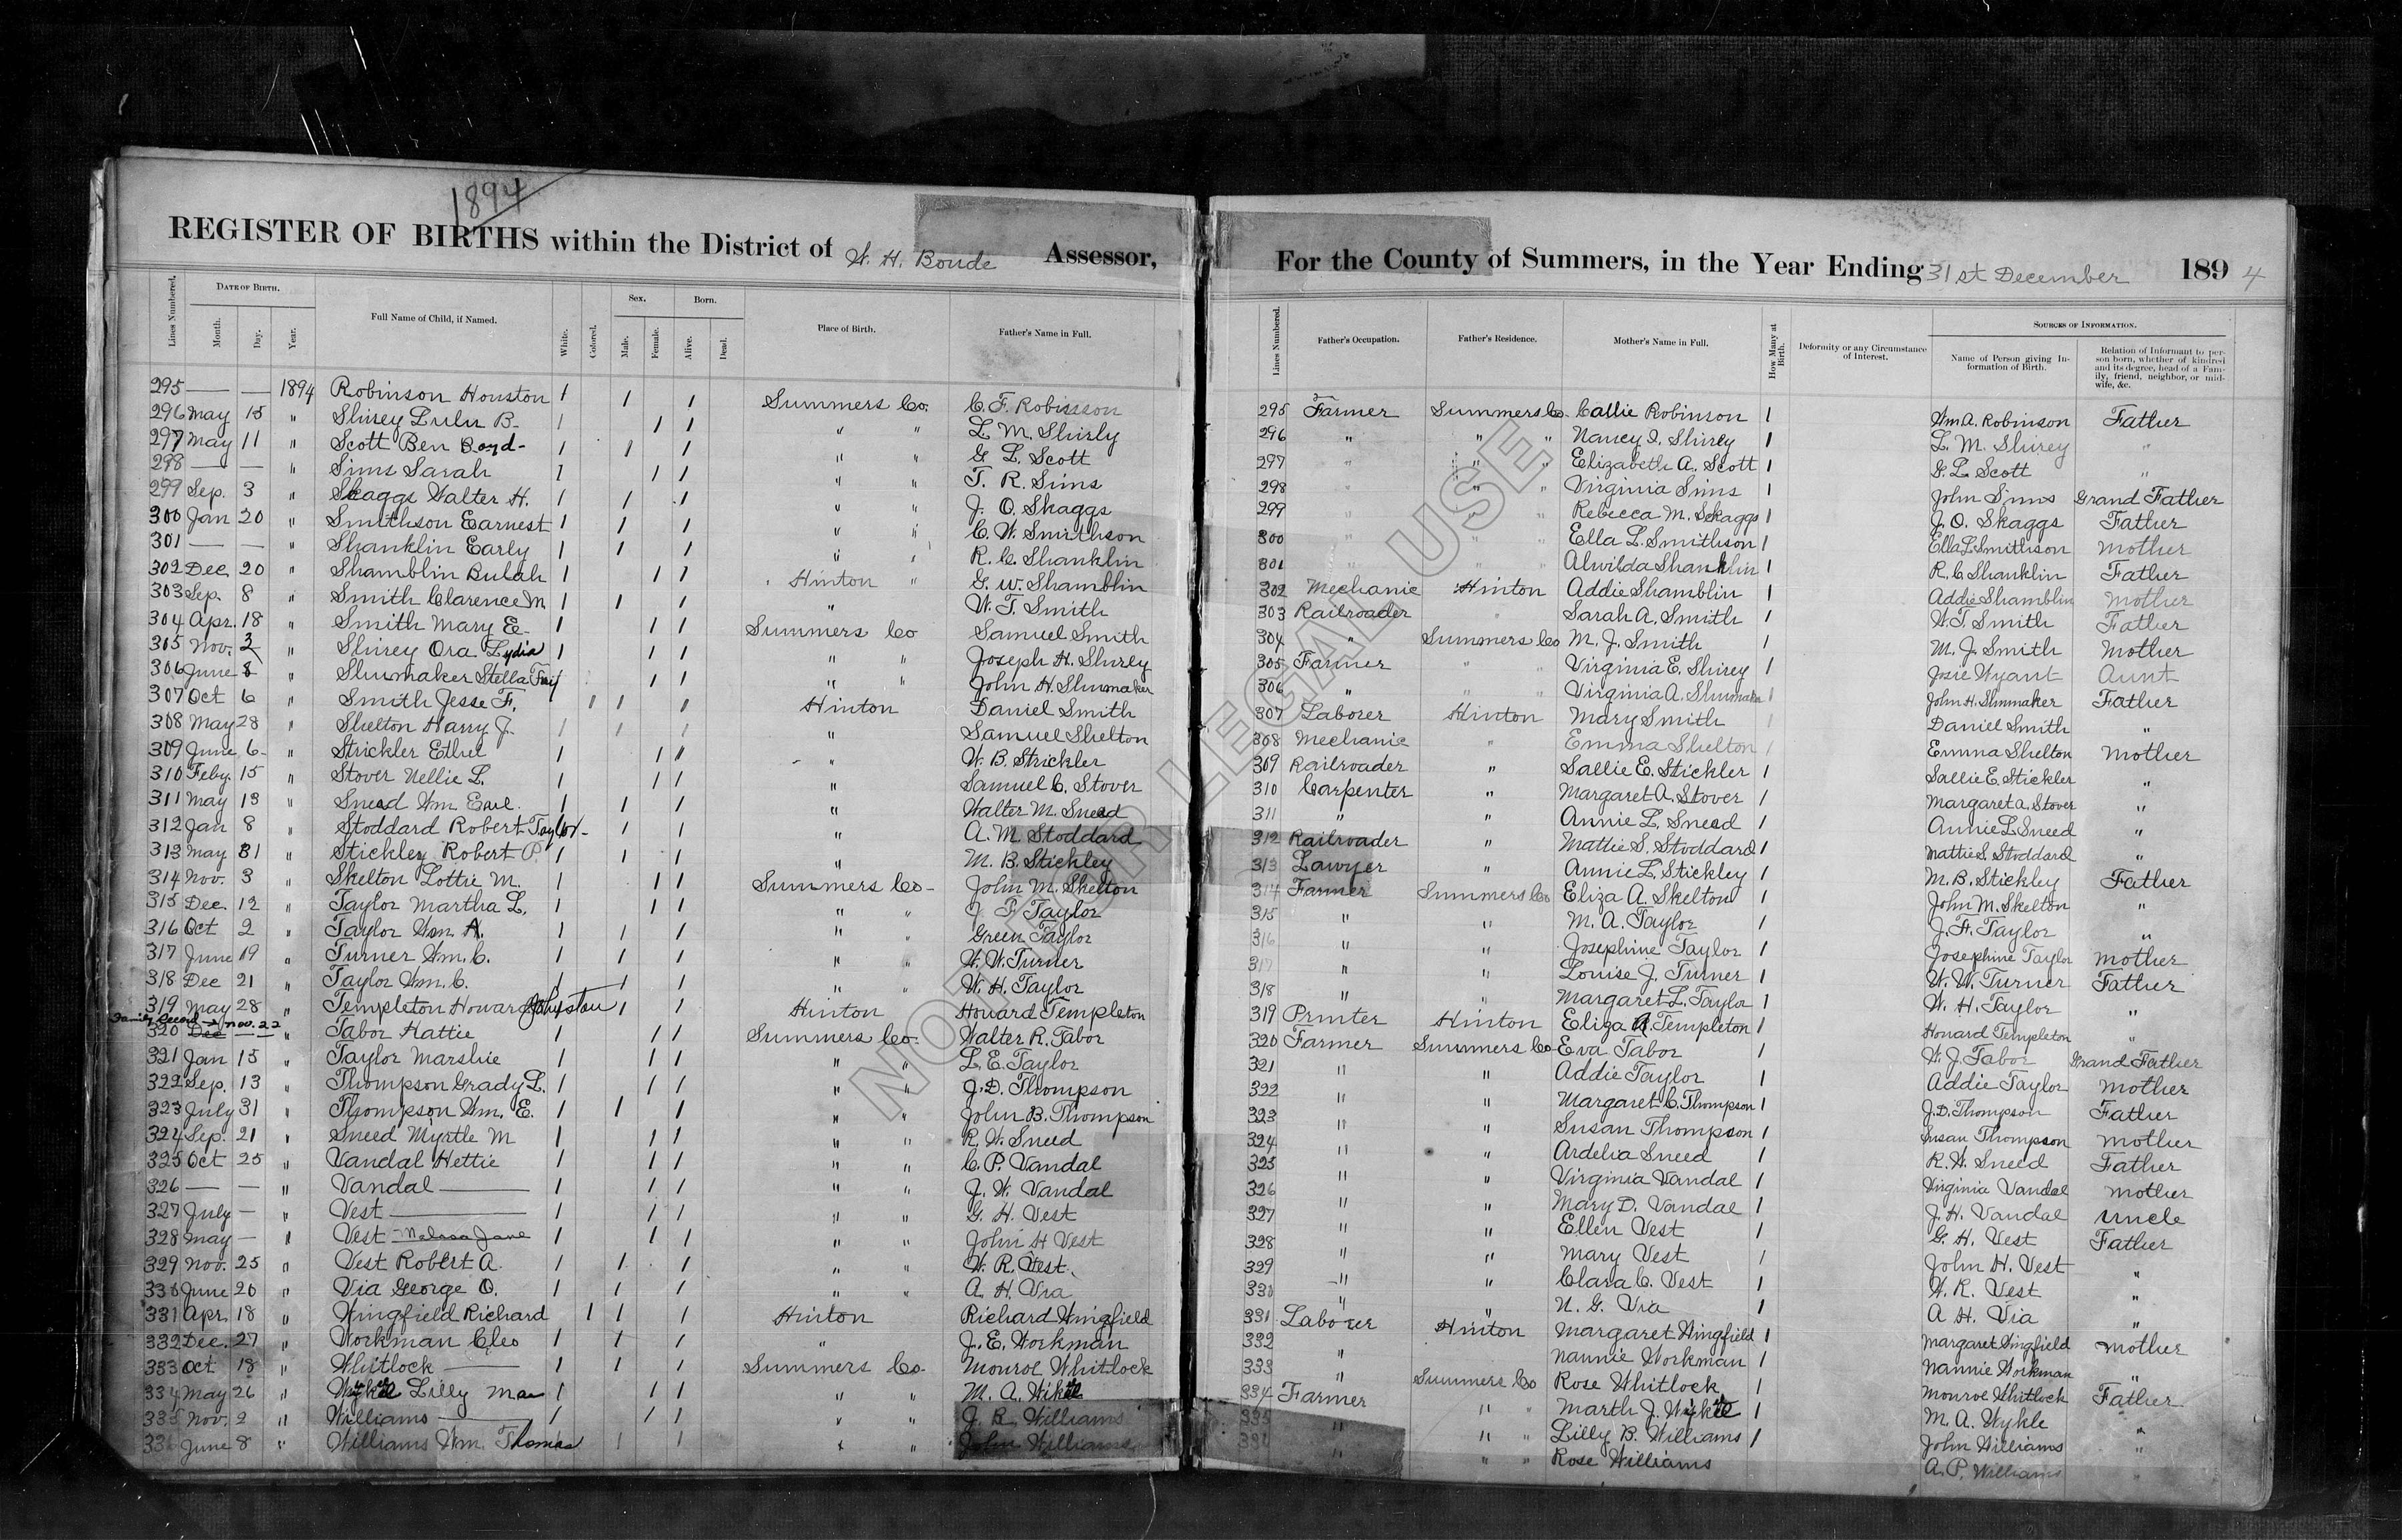 1894
REGISTER OF BIRTHS within the District of W. H. Boude Assessor,
Lines Numbered. DATE OF BIRTH. Month. Day. Year. Full Name of Child, if Named. White. Colored. Sex. Male. Female. Born. Alive. Dead. Place of Birth. Father's Name in Full.
295 — — 1894 Robinson Houston 1 1 1 Summers Co. C. F. Robisson
296 May 15 " Shirey Lulu B. 1 1 1 " " L. M. Shirly
297 May 11 " Scott Ben Boyd 1 1 1 " " G. L. Scott
298 — — " Sims Sarah 1 1 1 " " T. R. Sims
299 Sep. 3 " Skaggs Walter H. 1 1 1 " " J. O. Skaggs
300 Jan 20 " Smithson Earnest 1 1 1 " " C. W. Smithson
301 — — " Shanklin Early 1 1 1 " " R. C. Shanklin
302 Dec. 20 " Shamblin Bulah 1 1 1 Hinton " G. W. Shamblin
303 Sep. 8 " Smith Clarence M. 1 1 1 " W. T. Smith
304 Apr. 18 " Smith Mary E. 1 1 1 Summers Co Samuel Smith
305 Nov. 2 " Shirey Ora Lydia 1 1 1 " " Joseph H. Shirey
306 June 8 " Shumaker Stella 1 1 " " John H. Shumaker
307 Oct 6 " Smith Jesse F. 1 1 1 Hinton Daniel Smith
308 May 28 " Shelton Harry J. 1 1 1 " Samuel Shelton
309 June 6 " Strickler Ethel 1 1 1 " W. B. Strickler
310 Feby. 15 " Stover Nellie L. 1 1 1 " Samuel C. Stover
311 May 13 " Snead Wm. Earl. 1 1 1 " Walter M. Snead
312 Jan 8 " Stoddard Robert Taylor 1 1 " A. M. Stoddard
313 May 31 " Stickley Robert P. 1 1 1 " M. B. Stickley
314 Nov. 3 " Skelton Lottie M. 1 1 1 Summers Co John M. Skelton
315 Dec. 12 " Taylor Martha L. 1 1 1 " " J. F. Taylor
316 Oct 2 " Taylor Wm. A. 1 1 1 " " Green Taylor
317 June 19 " Turner Wm. C. 1 1 1 " " W. W. Turner
318 Dec 21 " Taylor Wm. C. 1 1 1 " " W. H. Taylor
319 May 28 " Templeton Howard Johnston 1 1 Hinton Howard Templeton
Family Record → Nov. 22
320 Dec — " Tabor Hattie 1 1 1 Summers Co. Walter R. Tabor
321 Jan 15 " Taylor Marshie 1 1 1 " " L. E. Taylor
322 Sep. 13 " Thompson Grady L. 1 1 1 " " J. D. Thompson
323 July 31 " Thompson Wm. E. 1 1 1 " " John B. Thompson
324 Sep. 21 " Sneed Myrtle M 1 1 1 " " R. W. Sneed
325 Oct 25 " Vandal Hettie 1 1 1 " " C. P. Vandal
326 — — " Vandal — 1 1 1 " " J. W. Vandal
327 July — " Vest — 1 1 1 " " G. H. Vest
328 May — " Vest Jane 1 1 1 " " John H Vest
329 Nov. 25 " Vest Robert A. 1 1 1 " " W. R. Vest
330 June 20 " Via George O. 1 1 1 " " A. H. Via
331 Apr. 18 " Wingfield Richard 1 1 1 Hinton Richard Wingfield
332 Dec. 27 " Workman Cleo 1 1 1 " J. E. Workman
333 Oct 18 " Whitlock — 1 1 1 Summers Co. Monroe Whitlock
334 May 26 " Wykle Lilly Mae 1 1 1 " " M. A. Wikle
335 Nov. 2 " Williams — 1 1 1 " " J. R. Williams
336 June 8 " Williams Wm. Thomas 1 1 " " John Williams
For the County of Summers, in the Year Ending 31st December 1894
Lines Numbered. Father's Occupation. Father's Residence. Mother's Name in Full. How Many at Birth. Deformity or any Circumstance of Interest. SOURCES OF INFORMATION. Name of Person giving Information of Birth. Relation of Informant to person born, whether of kindred and its degree, head of a Family, friend, neighbor, or midwife, &c.
295 Farmer Summers Co. Callie Robinson 1 Wm. A. Robinson Father
296 " " " Nancy J. Shirey 1 L. M. Shirey "
297 " " " Elizabeth A. Scott 1 G. L. Scott "
298 " " " Virginia Sims 1 John Sims Grand Father
299 " " " Rebecca M. Skaggs 1 J. O. Skaggs Father
300 " " " Ella L. Smithson 1 Ella L. Smithson Mother
301 " " " Alwilda Shanklin 1 R. C. Shanklin Father
302 Mechanic Hinton Addie Shamblin 1 Addie Shamblin Mother
303 Railroader " Sarah A. Smith 1 W. T. Smith Father
304 " Summers Co M. J. Smith 1 M. J. Smith Mother
305 Farmer " " Virginia E. Shirey 1 Josie Wyant Aunt
306 " " " Virginia A. Shumaker 1 John H. Shumaker Father
307 Laborer Hinton Mary Smith 1 Daniel Smith "
308 Mechanic " Emma Shelton 1 Emma Shelton Mother
309 Railroader " Sallie E. Stickler 1 Sallie E. Stickler "
310 Carpenter " Margaret A. Stover 1 Margaret A. Stover "
311 " " Annie L. Snead 1 Annie L. Sneed "
312 Railroader " Mattie S. Stoddard 1 Mattie S. Stoddard "
313 Lawyer " Annie L. Stickley 1 M. B. Stickley Father
314 Farmer Summers Co Eliza A. Skelton 1 John M. Skelton "
315 " " M. A. Taylor 1 J. F. Taylor "
316 " " Josephine Taylor 1 Josephine Taylor Mother
317 " " Louise J. Turner 1 W. W. Turner Father
318 " " Margaret L. Taylor 1 W. H. Taylor "
319 Printer Hinton Eliza R. Templeton 1 Howard Templeton "
320 Farmer Summers Co Eva Tabor 1 W. J. Tabor Grand Father
321 " " Addie Taylor 1 Addie Taylor Mother
322 " " Margaret C. Thompson 1 J. D. Thompson Father
323 " " Susan Thompson 1 Susan Thompson Mother
324 " " Ardelia Sneed 1 R. W. Sneed Father
325 " " Virginia Vandal 1 Virginia Vandal Mother
326 " " Mary D. Vandal 1 J. H. Vandal Uncle
327 " " Ellen Vest 1 G. H. Vest Father
328 " " Mary Vest 1 John H. Vest "
329 " " Clara C. Vest 1 W. R. Vest "
330 " " N. G. Via 1 A H. Via "
331 Laborer Hinton Margaret Wingfield 1 Margaret Wingfield Mother
332 " Nannie Workman 1 Nannie Workman "
333 " Summers Co Rose Whitlock 1 Monroe Whitlock Father
334 Farmer " " Marth J. Wykle 1 M. A. Wykle "
335 " " " Lilly B. Williams 1 John Williams "
336 " " " Rose Williams A. P. Williams "
NOT FOR LEGAL USE